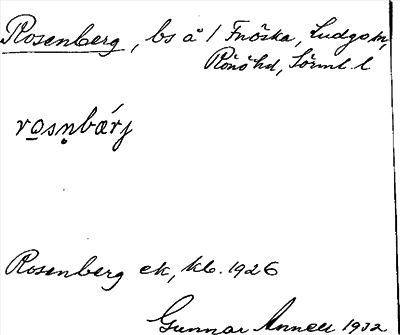 Rosenberg, bs å 1 Fnöska, Ludgo sn,
Rönö hd, Sörml. l
rosn̥bærj
Rosenberg ek, kb. 1926
Gunnar Annell 1932